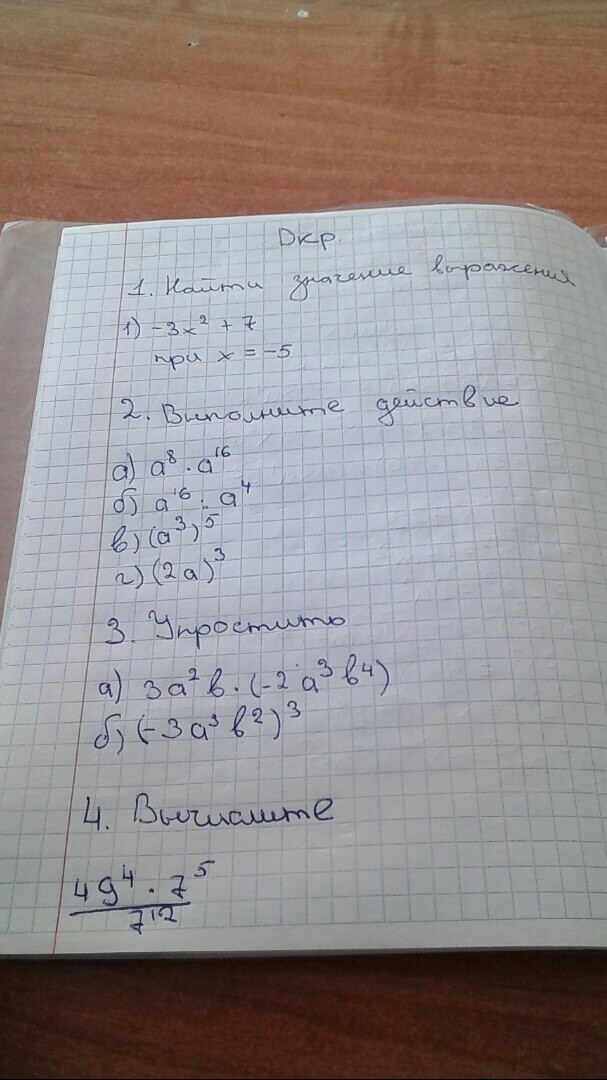 Дкр.
1. Найти значение выражения
1) -3x² + 7
при x = -5
2. Выполните действие
а) a⁸ · a¹⁶
б) a¹⁶ : a⁴
в) (a³)⁵
г) (2a)³
3. Упростить
а) 3a²b · (-2a³b⁴)
б) (-3a³b²)³
4. Вычислите
49⁴ · 7⁵
7¹²